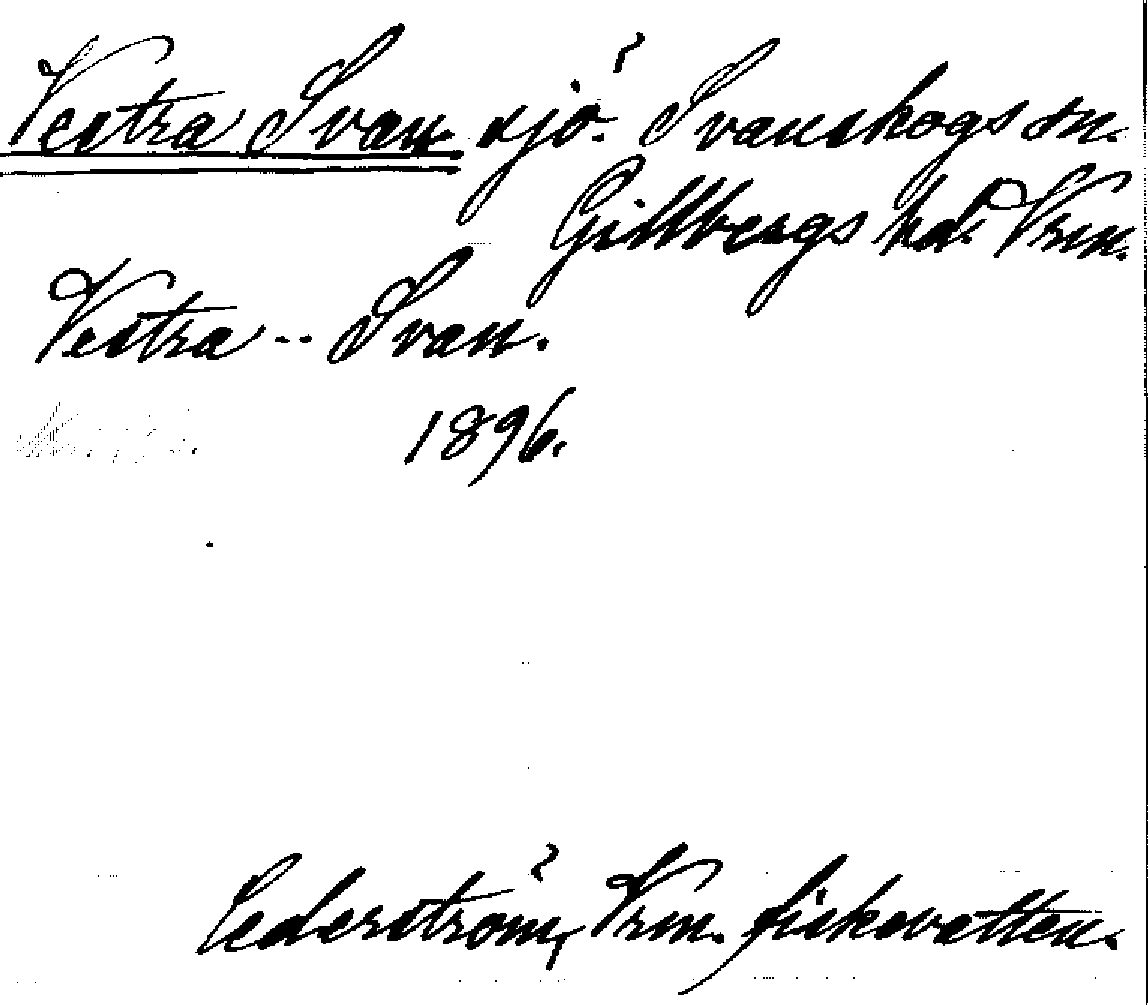 Vestra Svan sjö. Svanskogs sn.
Gillbergs hd. Vrm.
Vestra -- Svan.
1896.
Cederström, Vrm. fiskevatten.